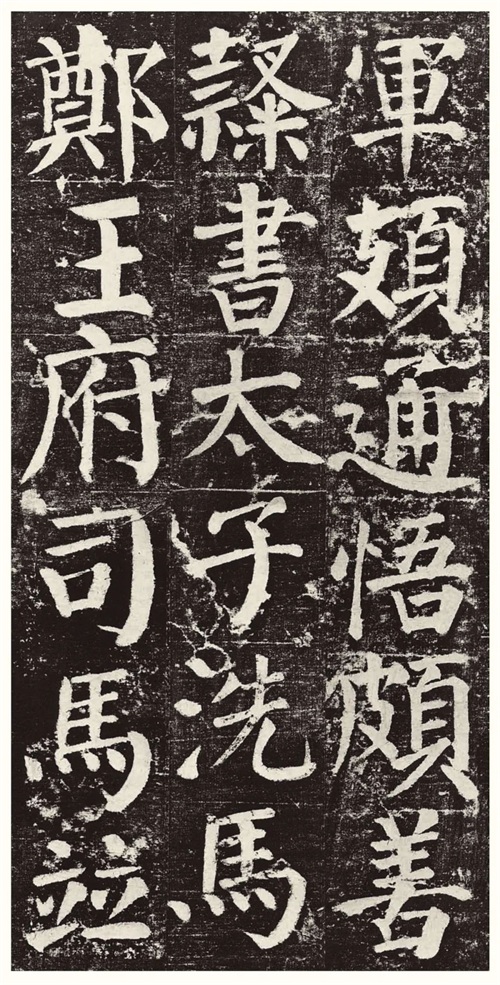 軍頍通悟頗善
隸書太子洗馬
鄭王府司馬竝